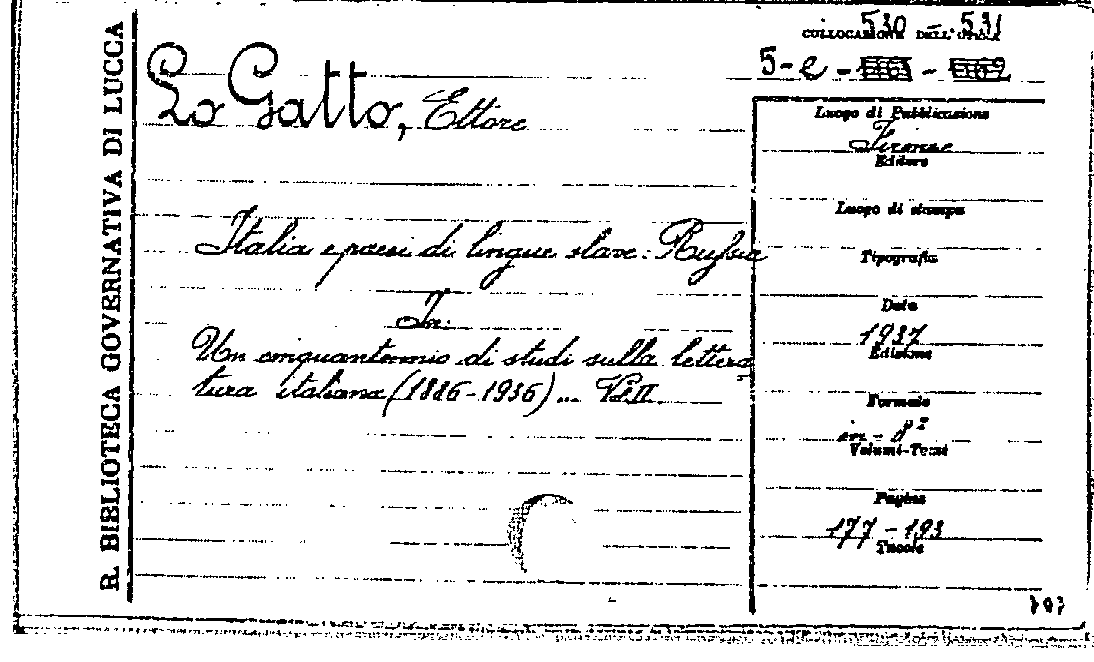 R. BIBLIOTECA GOVERNATIVA DI LUCCA
530 - 531
COLLOCAZIONE DELL'OPERA
5-e -
Lo Gatto, Ettore
Italia e paesi di lingue slave: Russia
In:
Un cinquantennio di studi sulla lettera
tura italiana (1886-1936)... Vol. II.
Luogo di Pubblicazione
Firenze
Editore
Luogo di stampa
Tipografia
Data
1937
Edizione
Formato
in-8º
Volumi-Tomi
Pagine
177-193
Tavole